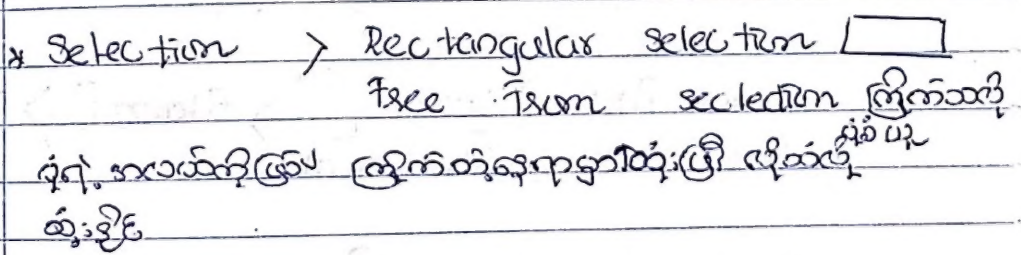 * Selection > Rectangular selection
free from secledtion ကြိုက်သလို
ပုံရဲ့ အလယ်ကိုဖြစ်ဖြစ် ကြိုက်တဲ့နေရာမှာထုံးပြီး လိုသလို ပုံစံ ယူ
သုံးနိုင်